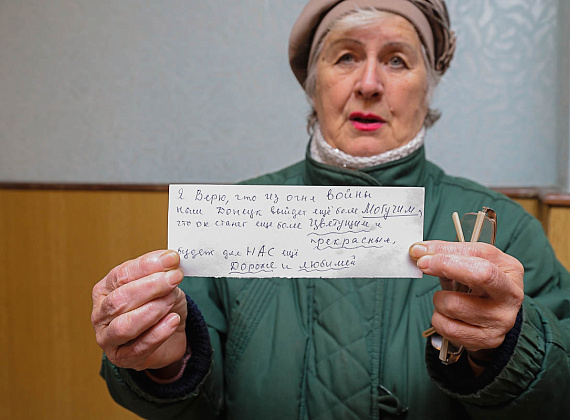 Я Верю, что из огня войны
наш Донецк выйдет ещё более Могучим,
что он станет ещё более Цветущим и
прекрасным,
будет для НАС ещё
Дороже и любимей